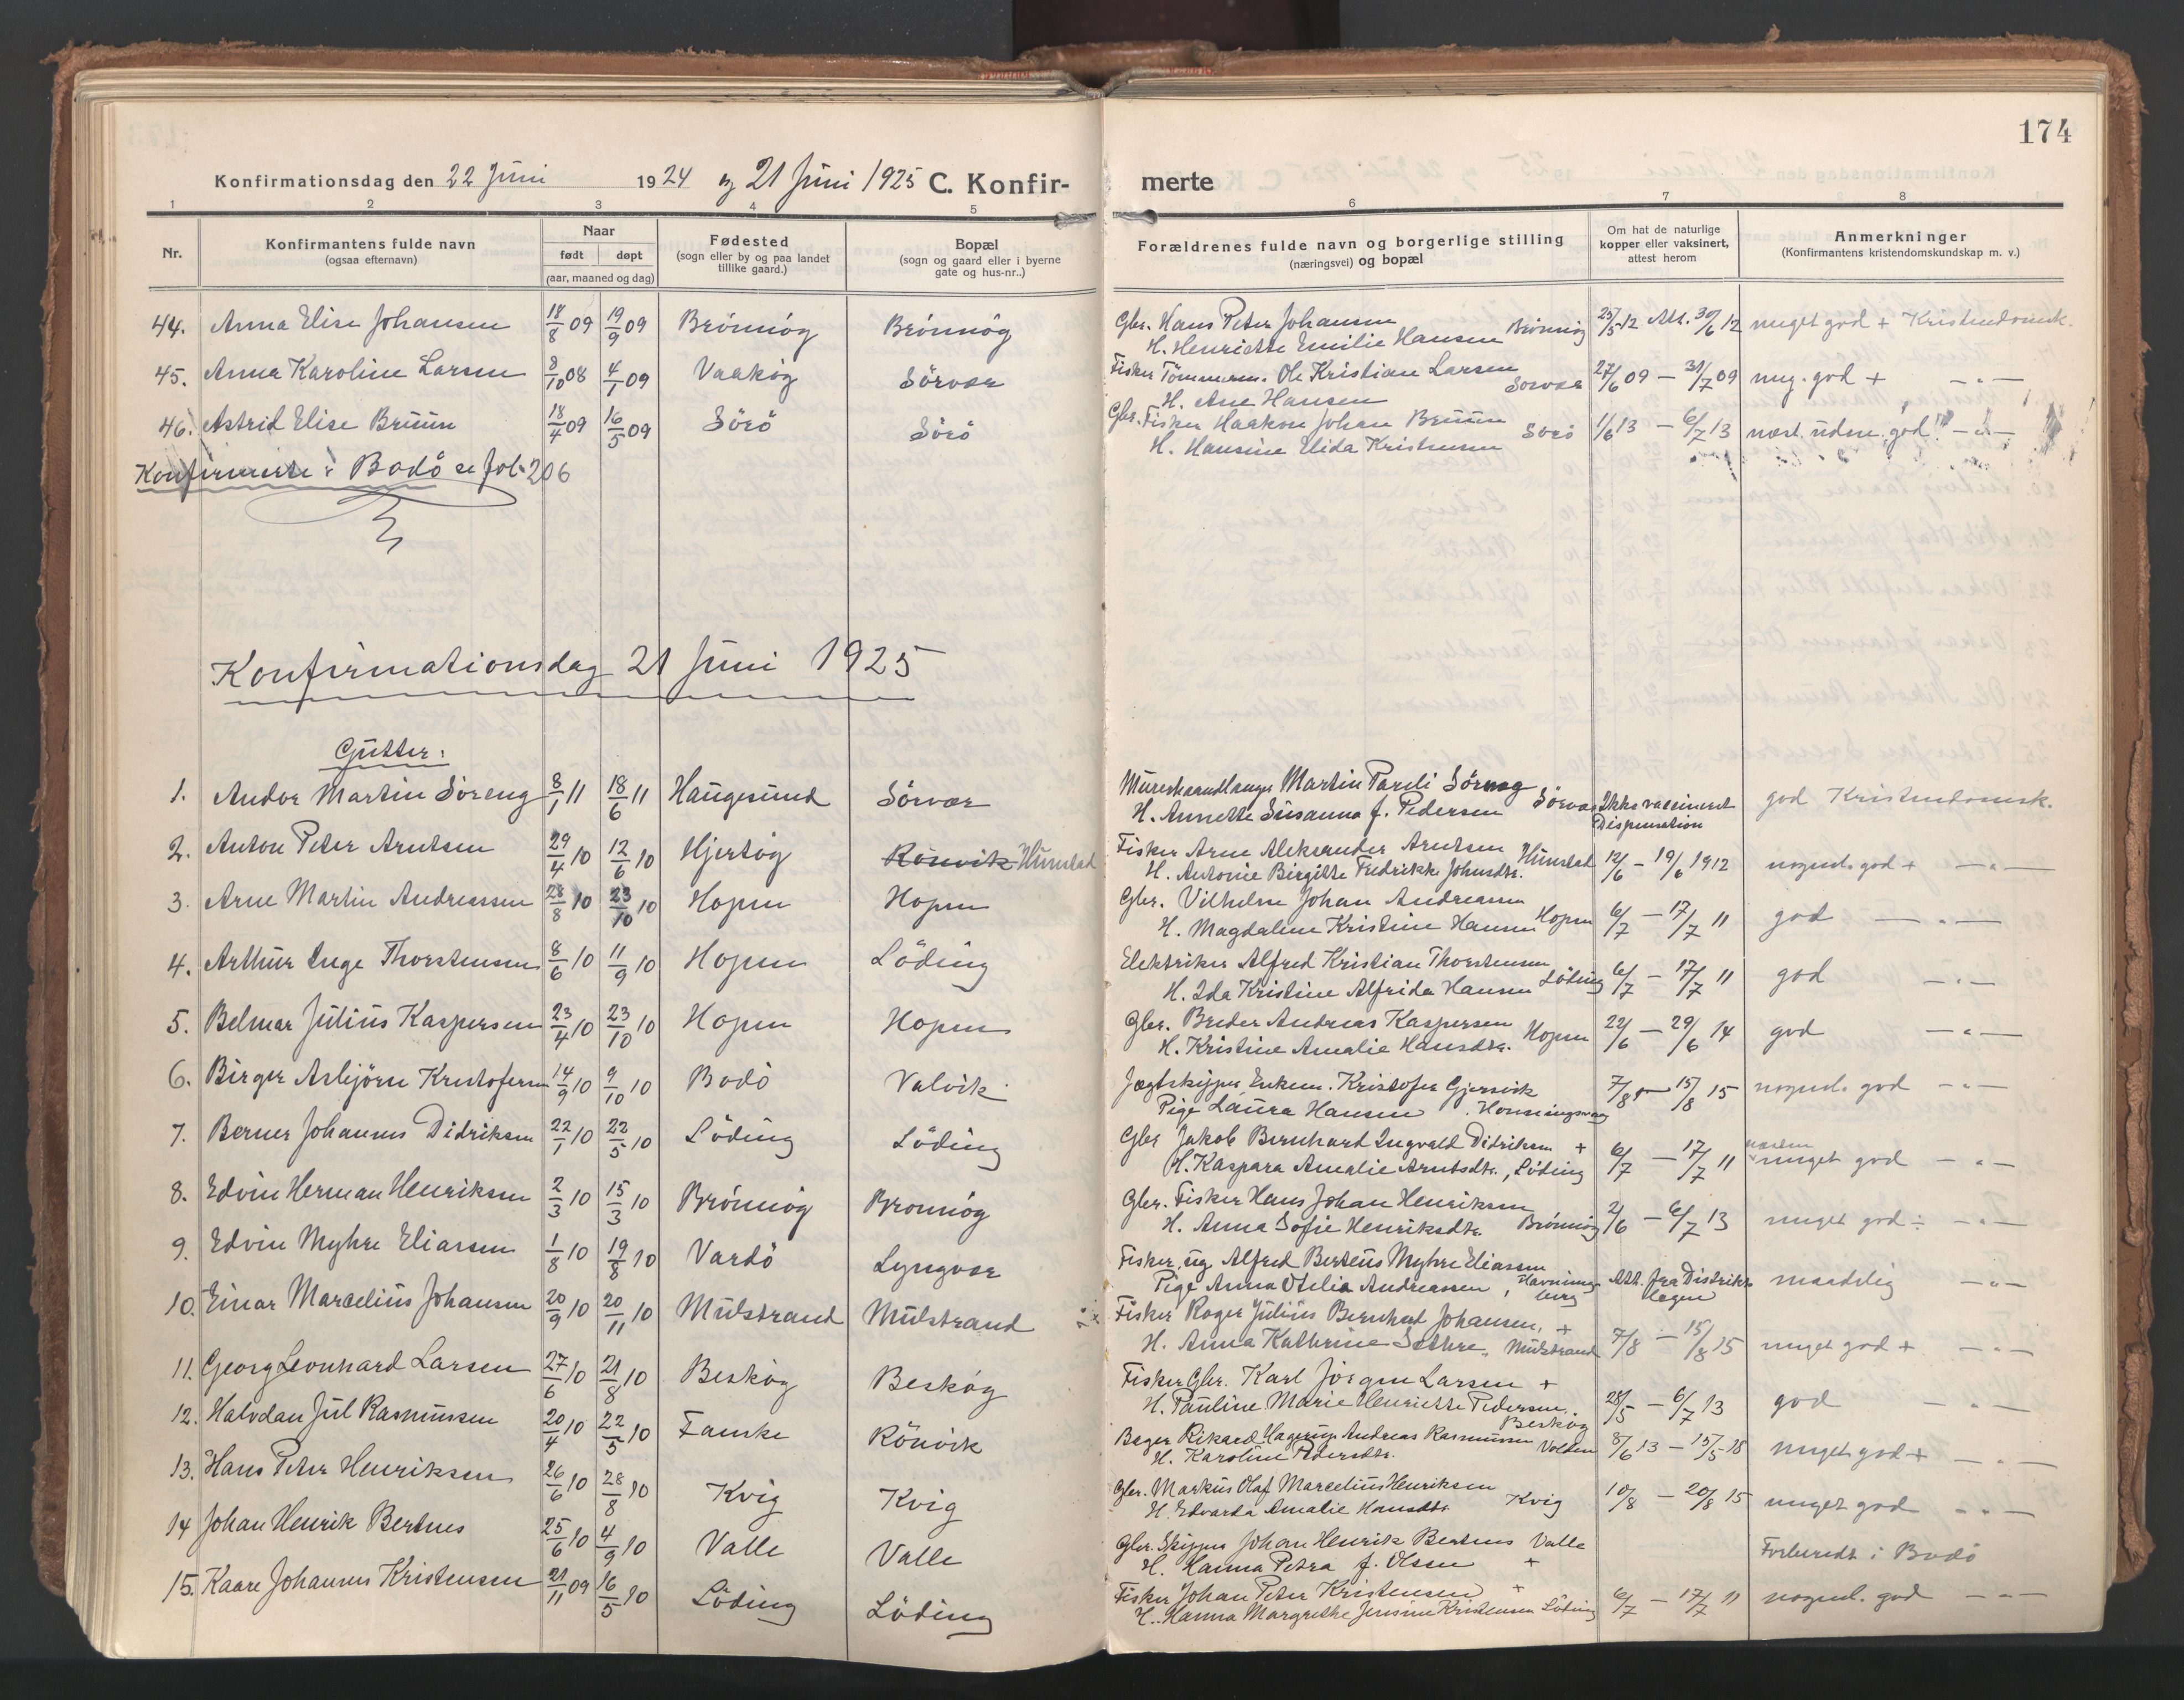 174
Konfirmationsdag den 22 Juni 1924 og 21 Juni 1925 C. Konfir- merte
1 2 3 4 5 6 7 8
Nr. Konfirmantens fulde navn (ogsaa efternavn) Naar født døpt (aar, maaned og dag) Fødested (sogn eller by og paa landet tillike gaard.) Bopæl (sogn og gaard eller i byerne gate og hus-nr..) Forældrenes fulde navn og borgerlige stilling (næringsvei) og bopæl Om hat de naturlige kopper eller vaksinert, attest herom Anmerkninger (Konfirmantens kristendomskundskap m. v.)
44. Anna Elise Johansen 18/8 09 19/9 09 Brönnög Brönnög Gbr. Hans Peter Johansen
H. Henriette Emilie Hansen Brönnög 25/5 12 Att. 30/6 12 meget god + Kristendomsk.
45. Anna Karoline Larsen 8/10 08 4/1 09 Vaakög Sörvær Fisker Tømmerm. Ole Kristian Larsen
H. Ane Hansen Sörvær 27/6 09 — 31/7 09 meg. god + — " —
46. Astrid Elise Bruun 18/4 09 16/5 09 Sörö Sörö Gbr. Fisker Haakon Johan Bruun
H. Hansine Elida Kristensen Sörö 1/6 13 — 6/7 13 næst. udm. god — " —
Konfirmerte i Bodö se fol. 206
Konfirmationsdag 21 Juni 1925
Gutter:
1. Andor Martin Söreng 8/1 11 18/6 11 Haugesund Sörvær Murerhaandlanger Martin Pareli Söreng
H. Annette Susanna f. Pedersen Sörvær Ikke vaccineret
Dispensation god Kristendomsk.
2. Anton Peter Arntsen 29/4 10 12/6 10 Hjertög Rönvik Hunstad Fisker Arne Aleksander Arntsen
H. Antonie Birgitte Fredrikke Johnsdtr. Hunstad 12/6 — 19/6 1912 nogenl. god + — " —
3. Arne Martin Andreassen 28/8 10 23/10 10 Hopen Hopen Gbr. Vilhelm Johan Andreassen
H. Magdaline Kristine Hansen Hopen 6/7 — 17/7 11 god — " —
4. Arthur Inge Thorstensen 8/6 10 11/9 10 Hopen Löding Elektriker Alfred Kristian Thorstensen
H. Ida Kristine Alfrida Hansen Löding 6/7 — 17/7 11 god — " —
5. Belmar Julius Kaspersen 23/4 10 23/10 10 Hopen Hopen Gbr. Breder Andreas Kaspersen
H. Kristine Amalie Hansdtr. Hopen 22/6 — 29/6 14 god — " —
6. Birger Asbjörn Kristofersen 14/9 10 9/10 10 Bodö Valvik Jægtskipper Enkem. Kristofer Gjersvik
Pige Laura Hansen Honningsvaag 7/8 — 15/8 15 nogenl. god — " —
7. Berner Johannes Didriksen 22/1 10 22/5 10 Löding Löding Gbr Jakob Bernhard Ingvald Didriksen +
H. Kaspara Amalie Arntsdtr., Löding 6/7 — 17/7 11 næsten meget god — " —
8. Edvin Herman Henriksen 2/3 10 15/3 10 Brönnög Bronnög Gbr. Fisker Hans Johan Henriksen
H. Anna Sofie Henriksdtr. Brönnög 2/6 — 6/7 13 meget god ÷ — " —
9. Edvin Myhre Eliassen 1/8 10 19/8 10 Vardö Lyngvær Fisker, ug. Alfred Berteus Myhre Eliassen
Pige Anna Otelia Andreassen, Havningberg Att. fra Distriktslægen maadelig — " —
10. Einar Marcelius Johansen 20/9 10 20/11 10 Mulstrand Mulstrand Fisker Roger Julius Bernhard Johansen, +
H. Anna Kathrine Sethre, Mulstrand 7/8 — 15/8 15 meget god + — " —
11. Georg Leonhard Larsen 27/6 10 21/8 10 Beskög Beskög Fisker Gbr. Karl Jörgen Larsen +
H. Pauline Marie Henriette Pedersen. Beskög 28/5 — 6/7 13 god — " —
12. Halvdan Jul Rasmussen 20/4 10 22/5 10 Fauske Rönvik Bager Rikard Hagerup Andreas Rasmussen
H. Karoline Pedersdtr. Volden 8/6 13 — 15/5 18 meget god + — " —
13. Hans Peter Henriksen 26/6 10 28/8 10 Kvig Kvig Gbr. Markus Olaf Marcelius Henriksen
H. Edvarda Amalie Hansdtr. Kvig 10/8 — 20/8 15 meget god — " —
14 Johan Henrik Bertnes 25/6 10 4/9 10 Valle Valle Gbr. Skipper Johan Henrik Bertnes Valle
H. Hanna Petra f. Olsen + Forberedt i Bodö
15. Kaare Johannes Kristensen 21/11 09 16/5 10 Löding Löding Fisker Johan Peter Kristensen +
H. Hanna Margrethe Jensine Kristensen Löding 6/7 — 17/7 11 nogenl. god — " —